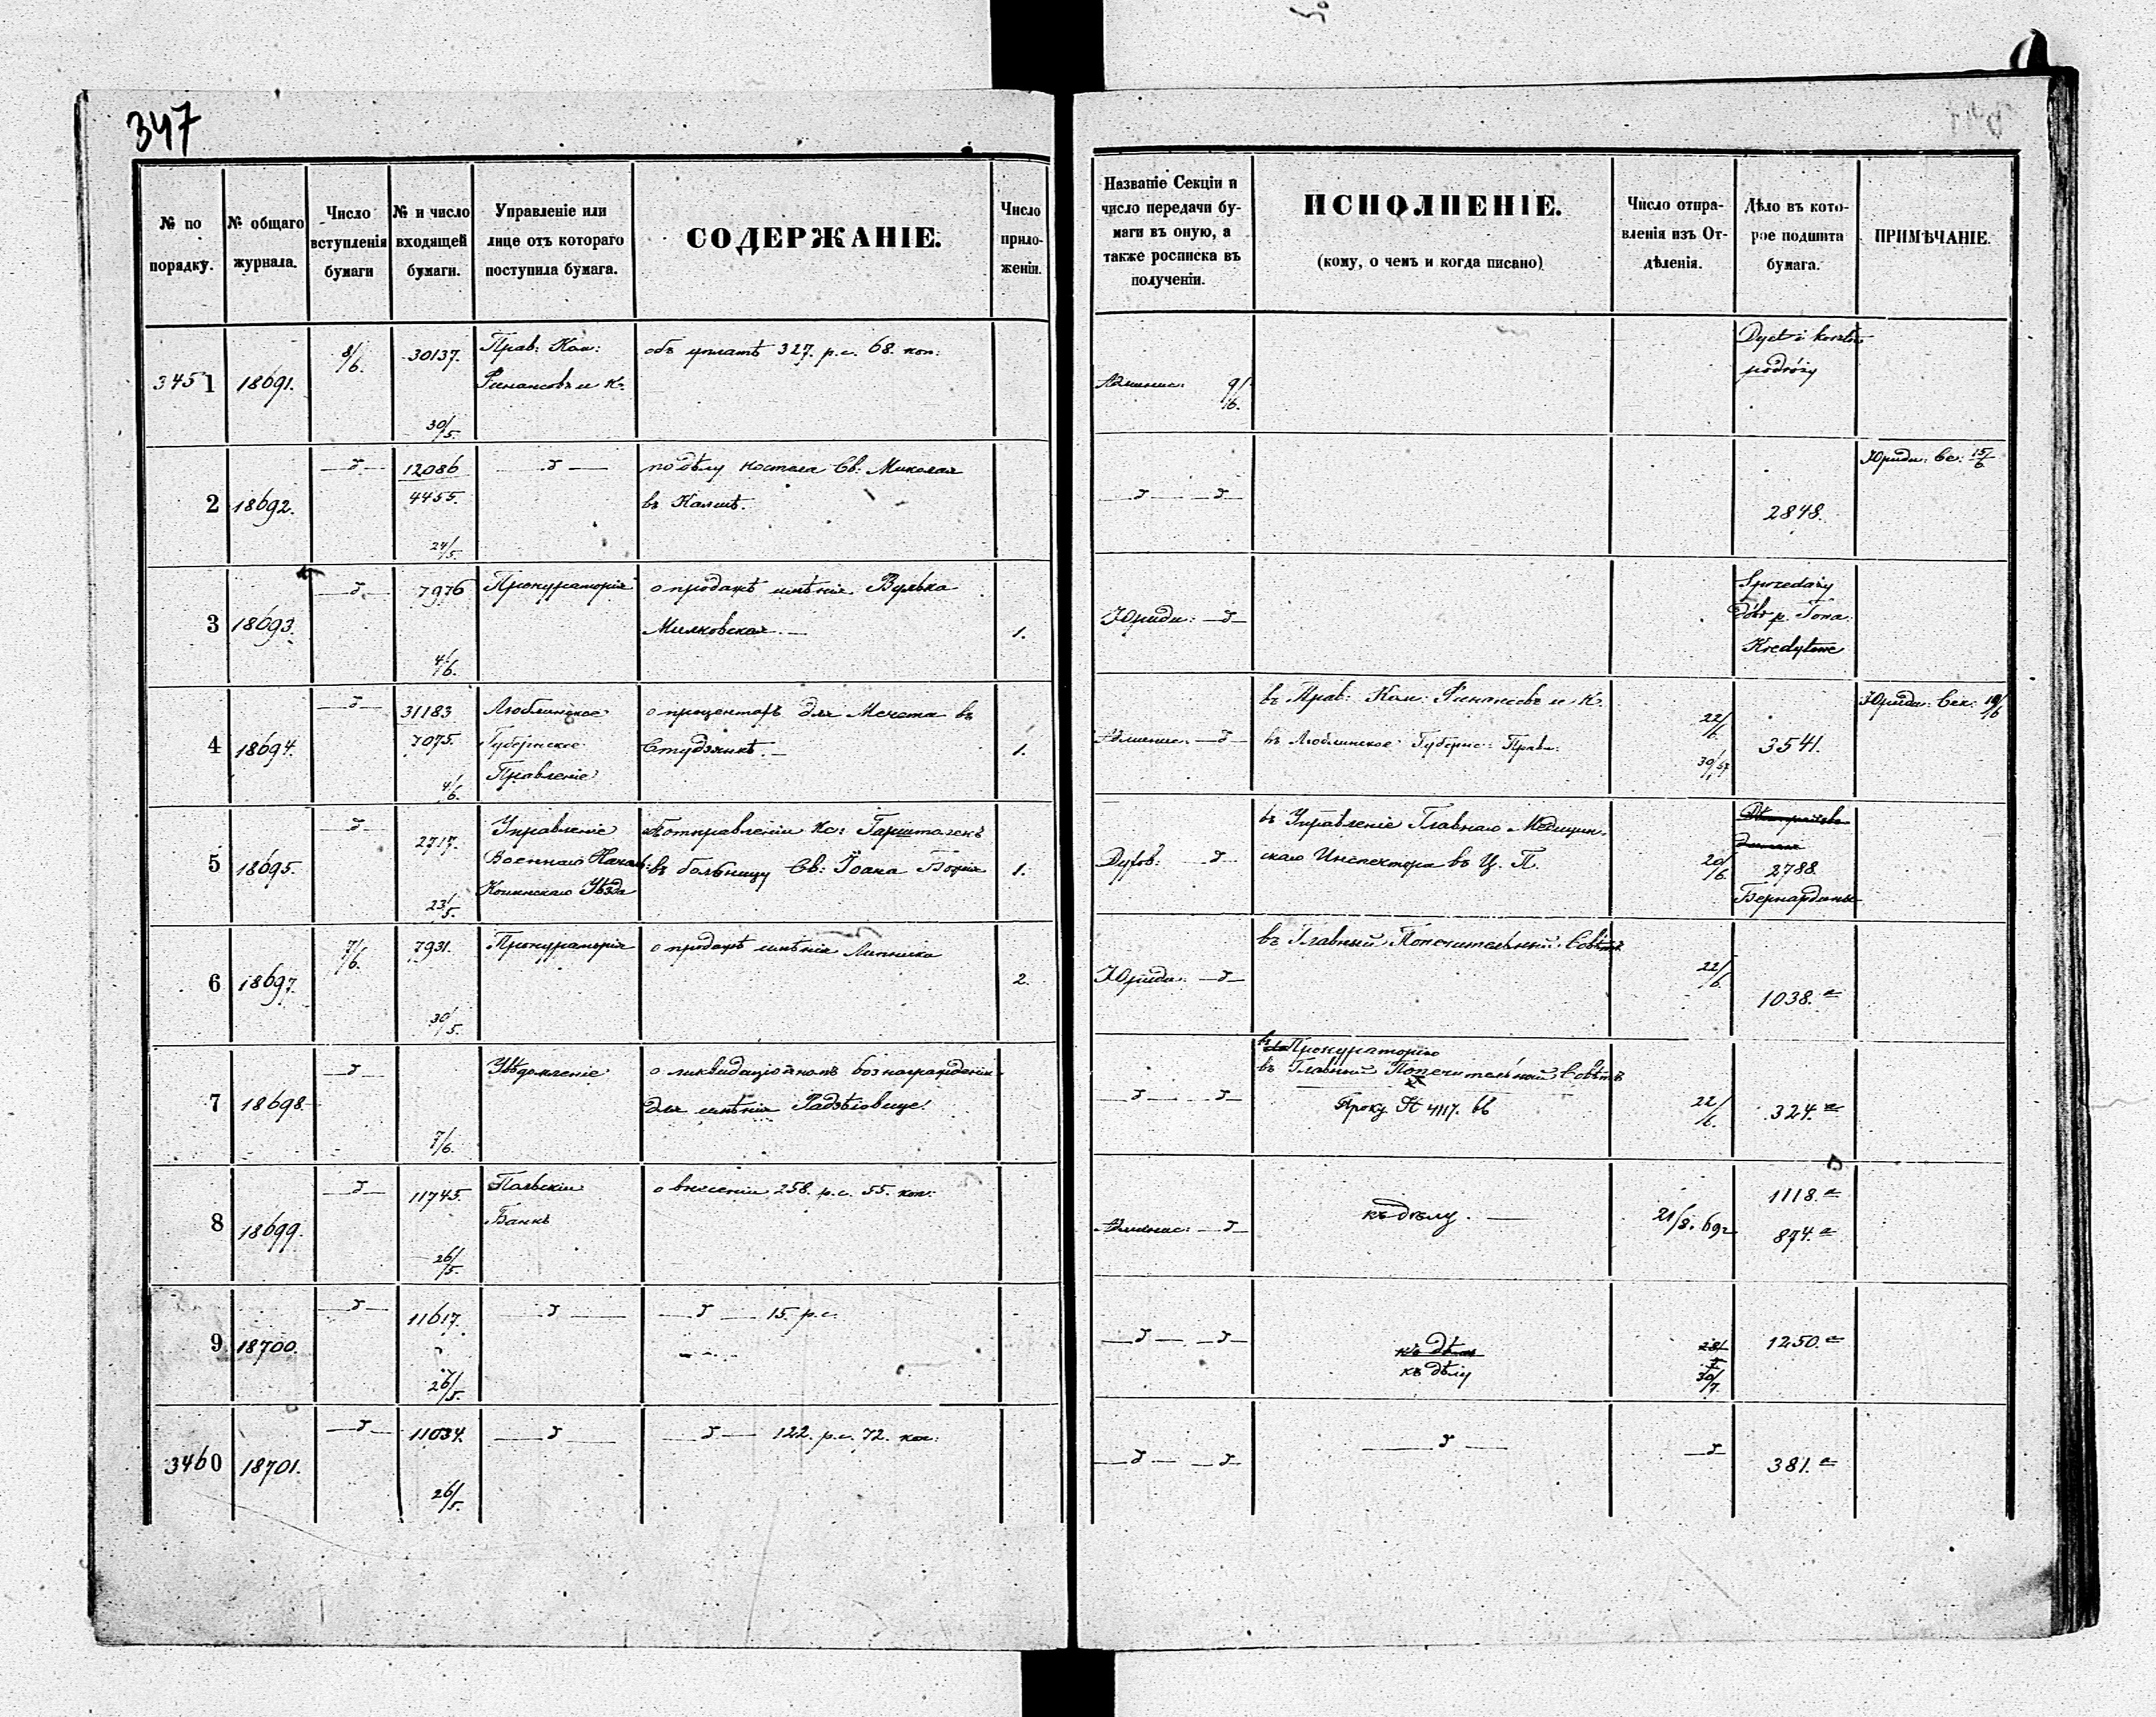 347
№ по порядку.
№ общаго журнала.
Число вступленія бумаги
№ и число входящей бумаги.
Управленіе или лице отъ котораго поступила бумага.
СОДЕРЖАНІЕ.
Число приложеніи.
Названіе Секціи и число передачи бумаги въ оную, а также росписка въ полученіи.
ИСПОЛНЕНІЕ.
(кому, о чемъ и когда писано)
Число отправленія изъ Отдѣленія.
Дѣло въ которое подшита бумага.
ПРИМѢЧАНІЕ.
3451 18691. 8/6. 30137. 30/5.
Прав: Ком:
Финансовъ и К:
объ уплатѣ 327. р.с. 68. коп:
Админис: 9/6.
podróży
2 18692. 12086 4455. 24/5.
по дѣлу костела Св: Николая
въ Калишѣ.
2848.
Юриди: Се: 15/6
3 18693. 7976 4/6.
Прокураторія
о продажѣ имѣнія Вулька
Милковская. 1.
Юриди:
Sprzedaży
dóbr p. Towa:
Kredytowe
4 18694. 31183 7075. 4/6.
Люблинское
Губернское
Правленіе
о процентахъ для Мечета въ
Студзянкѣ. 1.
Админис:
въ Прав: Ком: Финансовъ и К. 22/6.
въ Люблинское Губернс: Правл:
3541.
Юриди: Сек:
5 18695. 2717. 23/5.
Управленіе
Военнаго Начал:
Конинскаго Уѣзда
въ больницу Св: Іоана Божія 1.
Духов:
въ Управленіе Главнаго Медицин-
скаго Инспектора въ Ц. П. 20/6.
2788.
Бернардины
6 18697. 7/6. 7931. 30/5.
Прокураторія
о продажѣ имѣнія Липника 2.
Юриди:
въ Главный Попечительный Совѣтъ 22/6.
1038.
7 18698. 7/6.
Увѣдомленіе
о ликвидаціонномъ вознагражденіи
для имѣнія Радзѣіовице.
въ Прокураторію
въ Главный Попечительный Совѣтъ
22/6. 324.
8 18699. 11745. 26/5.
Польскій
Банкъ
о внесеніи 258. р.с. 55. коп:
Админис:
къ дѣлу. 21/8. 69г
1118.
874.
9 18700. 11617. 26/5.
15. р.с.
къ дѣлу
къ дѣлу 30/7.
1250.
3460 18701. 11034. 26/5.
122. р.с. 72. коп:
381.